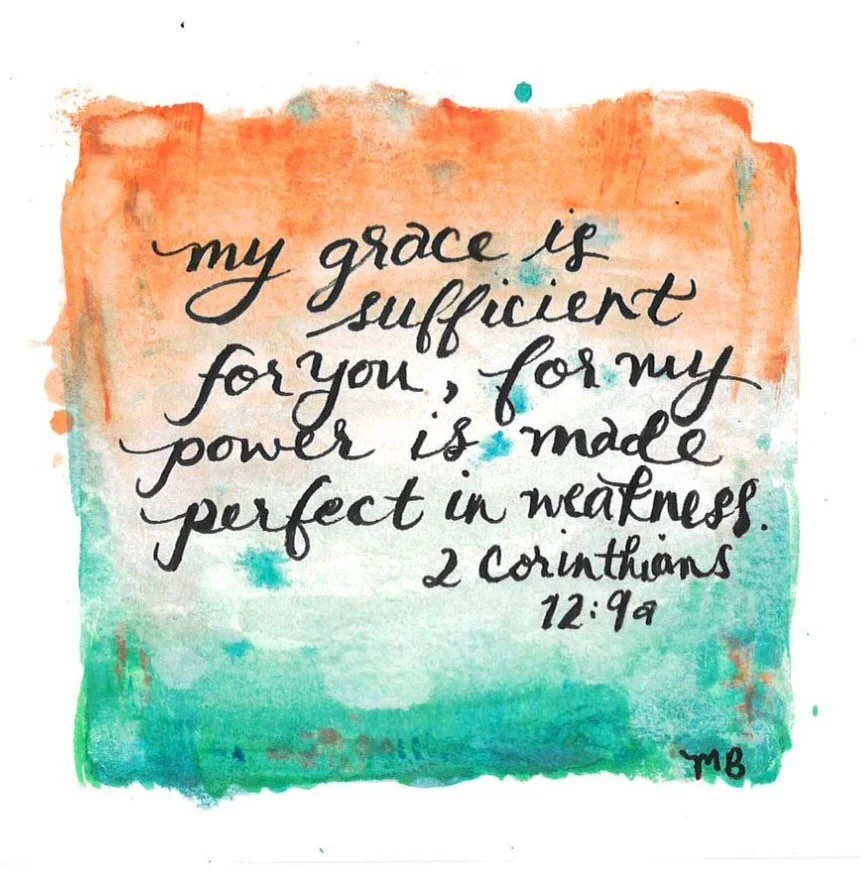 my grace is
sufficient
for you, for my
power is made
perfect in weakness.
2 Corinthians
12:9a
MB